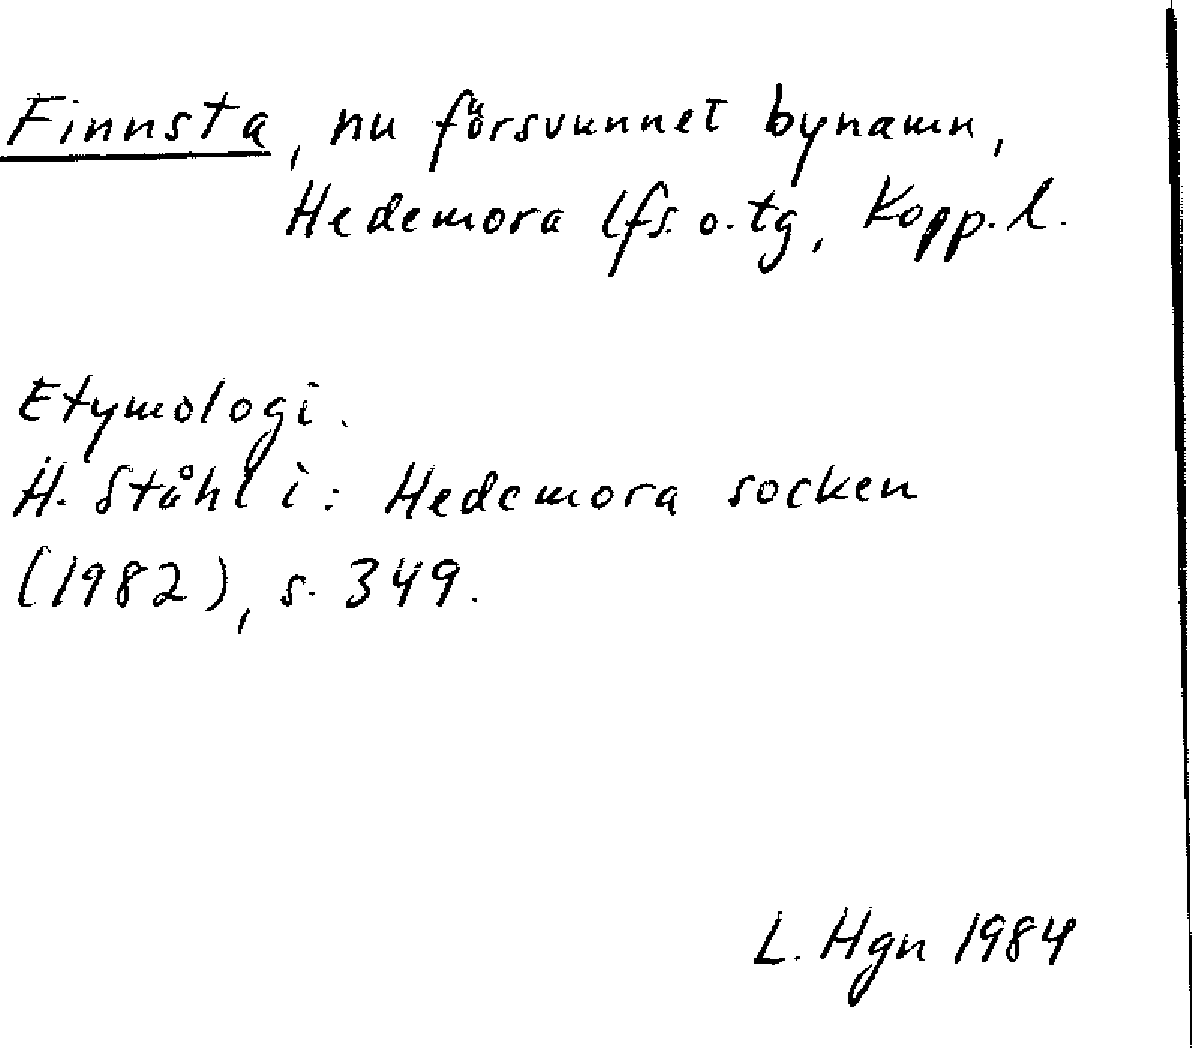 Finnsta, nu försvunnet bynamn,
Hedemora lfs. o. tg, Kopp. l.
Etymologi.
H. Ståhl i: Hedemora socken
(1982), s. 349.
L. Hgn 1984